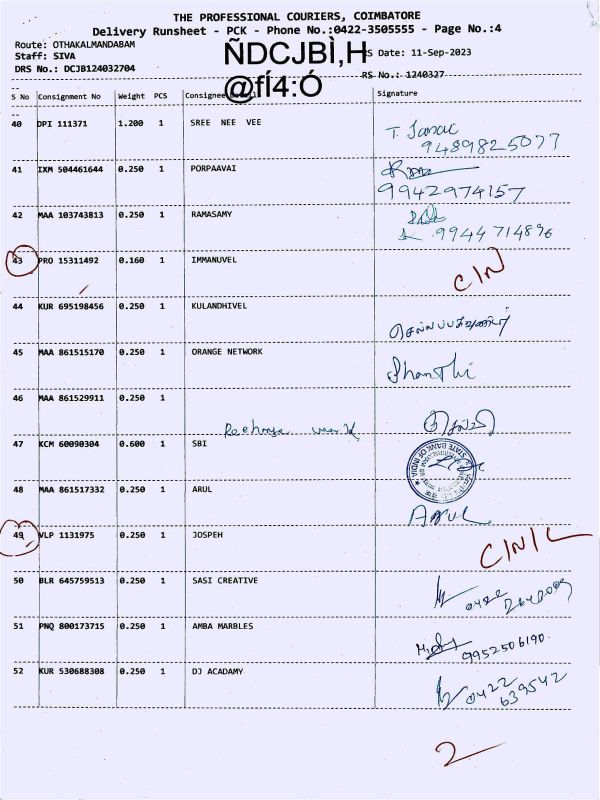 THE PROFESSIONAL COURIERS, COIMBATORE
Delivery Runsheet - PCK - Phone No.:0422-3505555 - Page No.:4
Route: OTHAKALMANDABAM
Staff: SIVA
DRS No.: DCJB124032704
ÑDCJBÌ,H
@fÍ4:Ó
RS Date: 11-Sep-2023
RS No.: 1240327
S No Consignment No Weight PCS Consignee Signature
40 DPI 111371 1.200 1 SREE NEE VEE
9489825077
41 IXM 504461644 0.250 1 PORPAAVAI
9942974157
42 MAA 103743813 0.250 1 RAMASAMY
9944714896
43 PRO 15311492 0.160 1 IMMANUVEL C/N
44 KUR 695198456 0.250 1 KULANDHIVEL
45 MAA 861515170 0.250 1 ORANGE NETWORK Shanthi
46 MAA 861529911 0.250 1
47 KCM 60090304 0.600 1 SBI
STATE BANK OF INDIA
48 MAA 861517332 0.250 1 ARUL Arul
49 VLP 1131975 0.250 1 JOSPEH C/N/L
50 BLR 645759513 0.250 1 SASI CREATIVE
0422
51 PNQ 800173715 0.250 1 AMBA MARBLES
9952506190
52 KUR 530688308 0.250 1 DJ ACADAMY
0422
639542
2